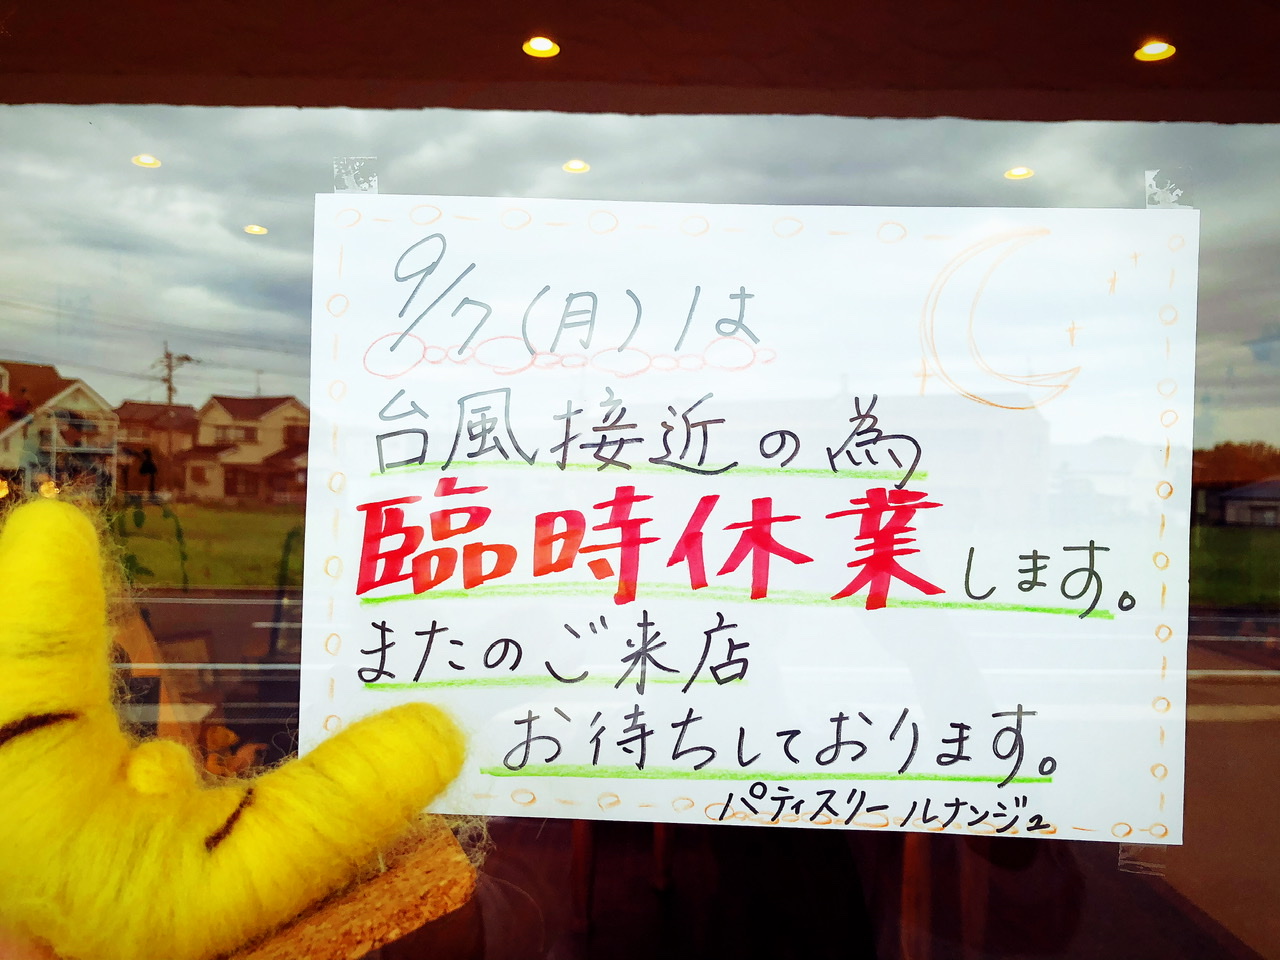 9/7(月)は
台風接近の為
臨時休業します。
またのご来店
お待ちしております。
パティスリールナンジュ